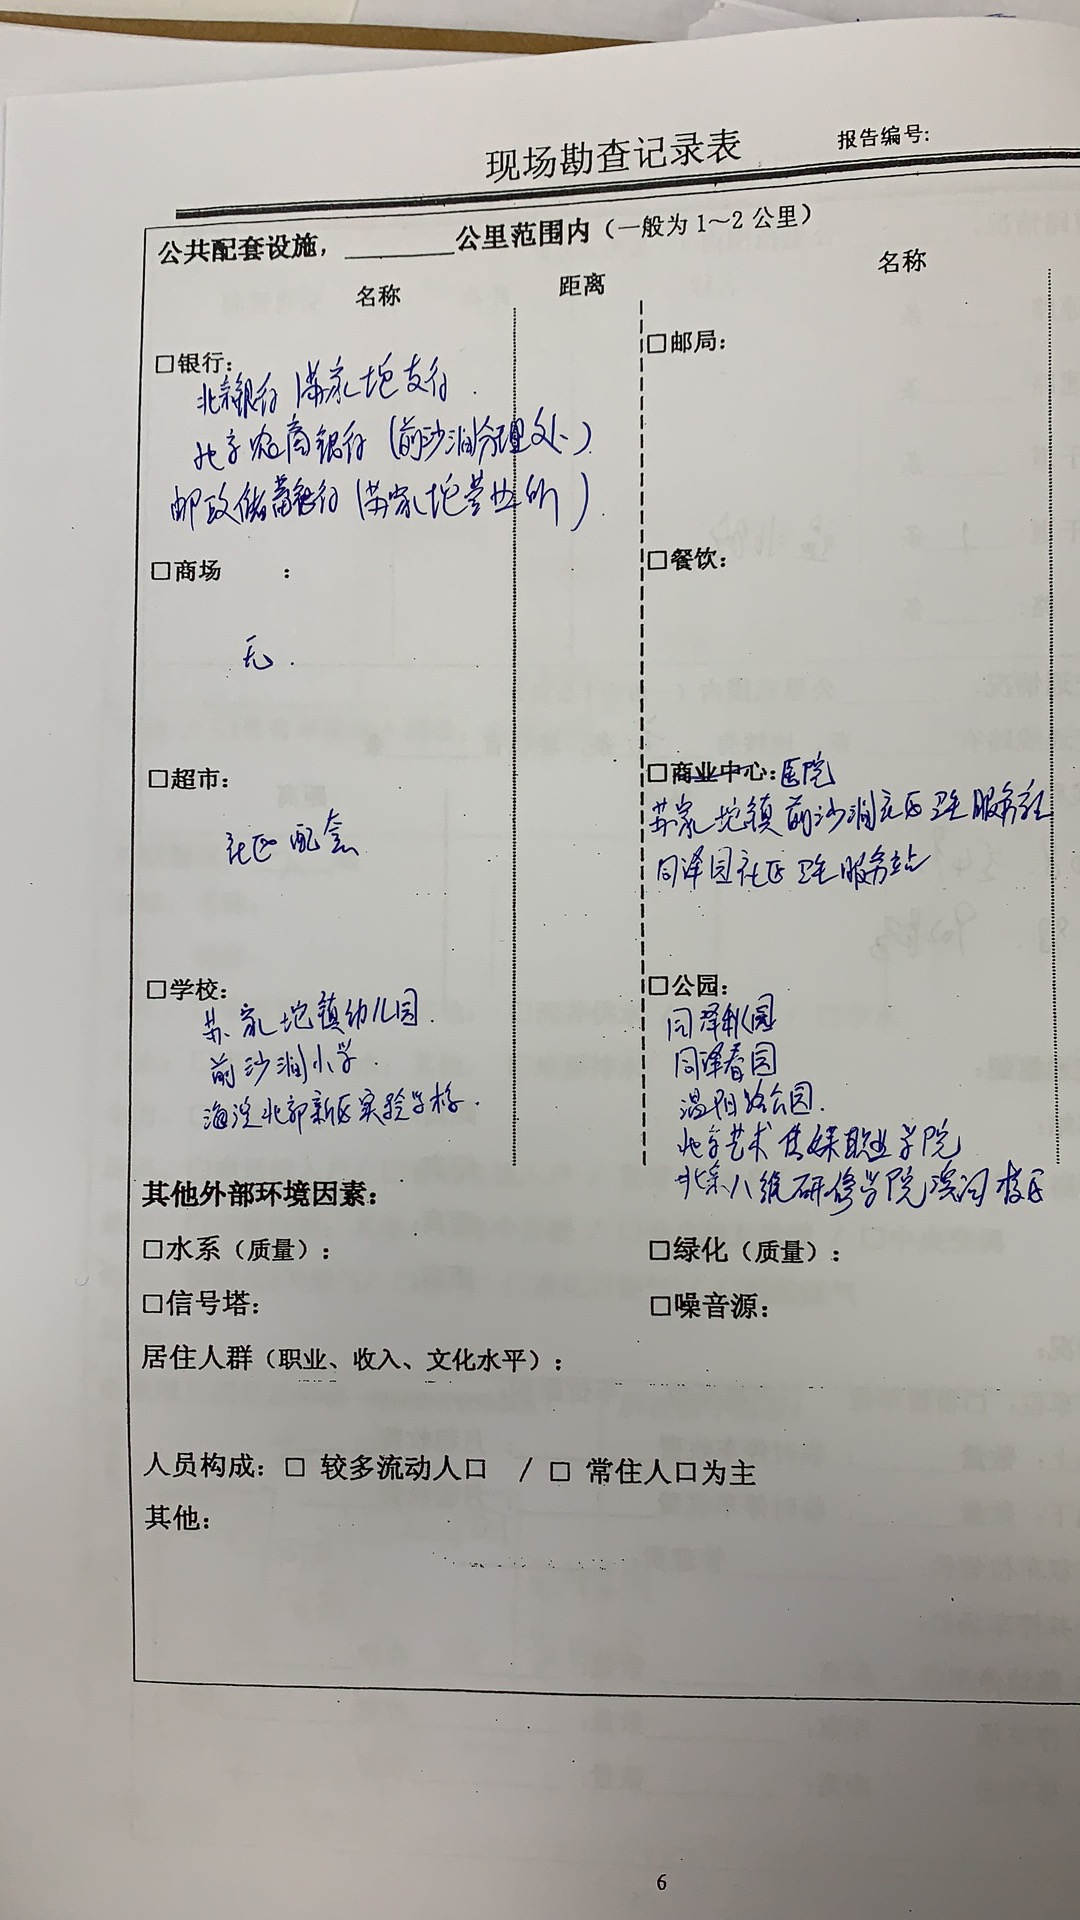 现场勘查记录表
报告编号:
公共配套设施，________公里范围内（一般为 1～2 公里）
名称 距离 名称
□银行:
北京银行（苏家坨支行
北京农商银行（前沙涧分理处）
邮政储蓄银行（苏家坨营业所）
□商场 :
无.
□超市:
社区配套
□学校:
苏家坨镇幼儿园
前沙涧小学
海淀北部新区实验学校.
□邮局:
□餐饮:
□商业中心:医院
苏家坨镇前沙涧社区卫生服务站
同泽园社区卫生服务站
□公园:
同泽秋园
同泽春园
温阳路公园.
北京艺术传媒职业学院
北京八维研修学院滨河校区
其他外部环境因素:
□水系（质量）: □绿化（质量）:
□信号塔: □噪音源:
居住人群（职业、收入、文化水平）:
人员构成: □ 较多流动人口 / □ 常住人口为主
其他:
6